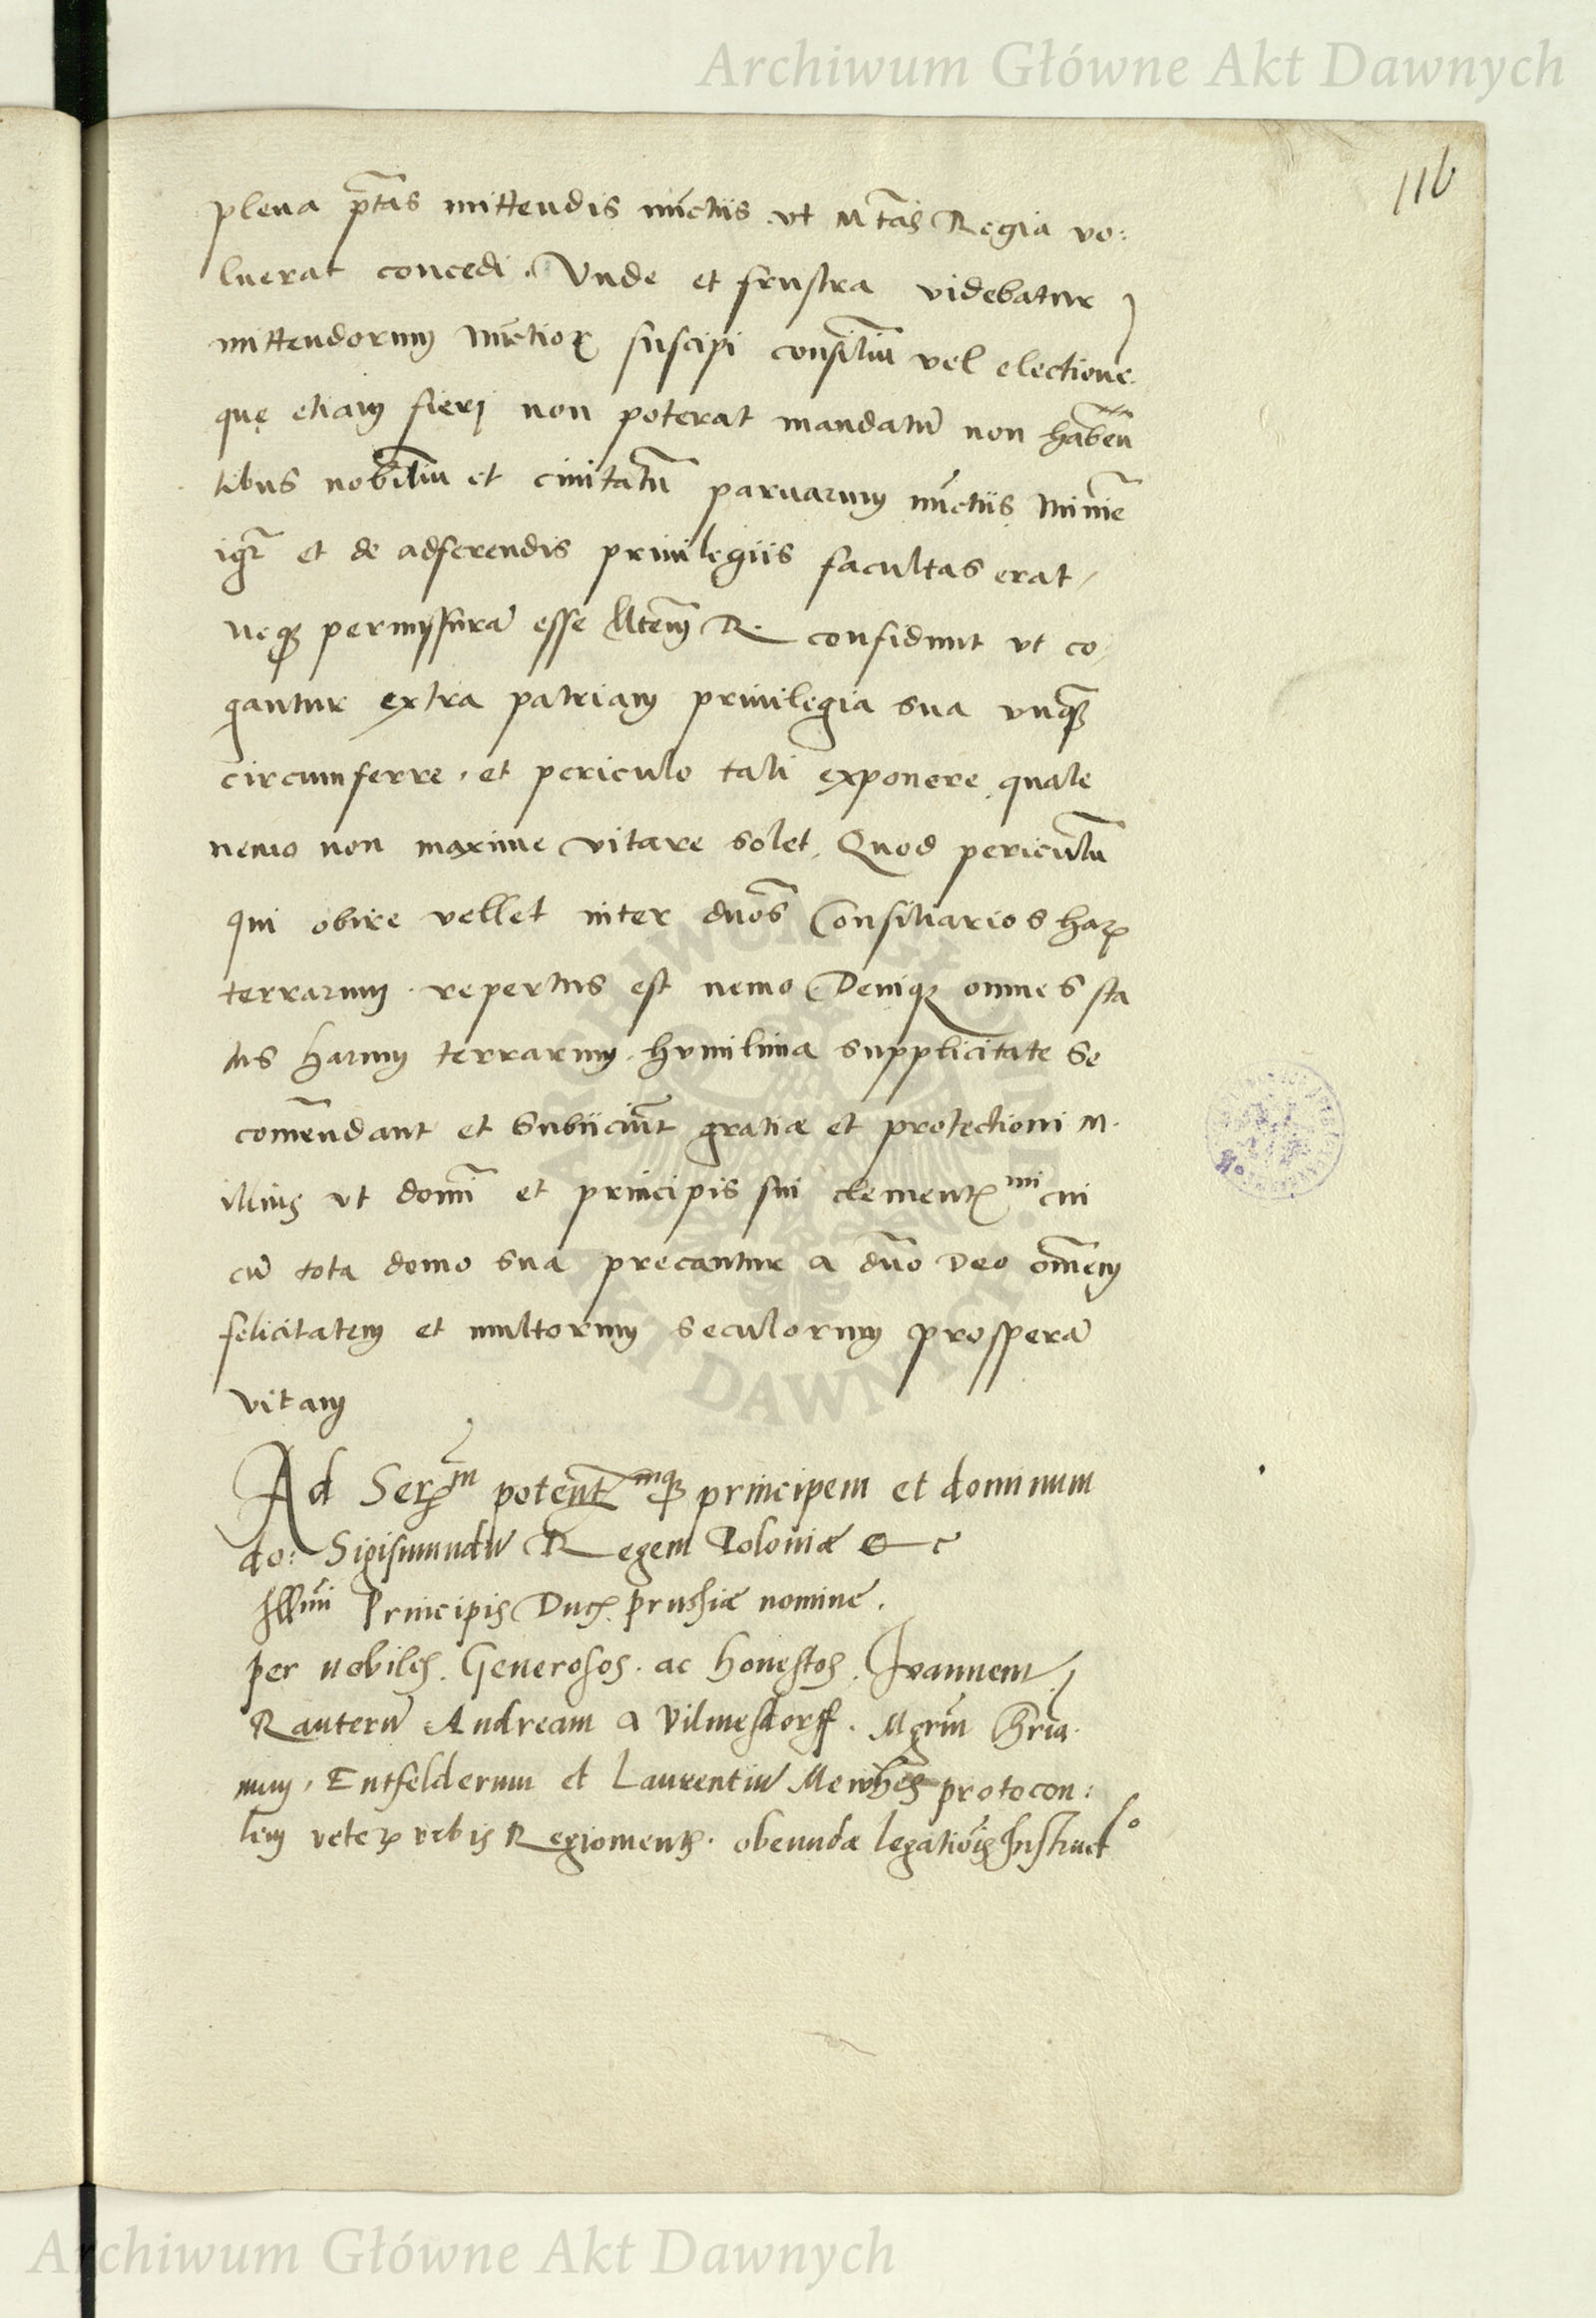 Archiwum Główne Akt Dawnych
116
plena ptãs mittendis nũctiis vt Mtãs Regia vo:
luerat concedi. Vnde et frustra videbatur
mittendorum Nũctioꝝ suscipi consiliũ vel electione.
quę etiam fieri non poterat mandatũ non habeñ
tibus nobiliũ et ciuitatũ paruarum nũctiis Minĩe
igr̃ et de adferendis priuilegiis facultas erat,
neqꝫ permyssurã esse Mtem̃ R. confidunt vt co
gantur extra patriam priuilegia sua vnqꝫ̃
circumferre, et periculo tali exponere quale
nemo non maxime vitare solet. Quod periculũ
qui obire vellet inter duos̃ Consiliarios haꝝ
terrarum. repertus est nemo Deniqꝫ omnes sta
tus harum terrarum. humilima supplicitate se
com̃endant et Subiiciũt gratiæ et protectioni M.
illius vt domĩ et principis sui clementꝭ mi cui
cũ tota domo sua precantur a dũo Deo om̃em
felicitatem et multorum seculorum prosperã
vitam
Ad Serꝫm potentꝭ mqꝫ principem et dominum
do: Sigismundũ Regem Poloniæ &c
Illmi Principis Ducꝭ prussiæ nomine.
per nobiles. Generosos. ac honestos. Joannem
Rauterũ Andream a Vilmesdorff. Mgrũ Chria.
num. Entfelderum et Laurentiũ protocon:
lem veteꝝ vrbis Regiomentꝭ. obeundæ legatiõis Instructo
Archiwum Główne Akt Dawnych